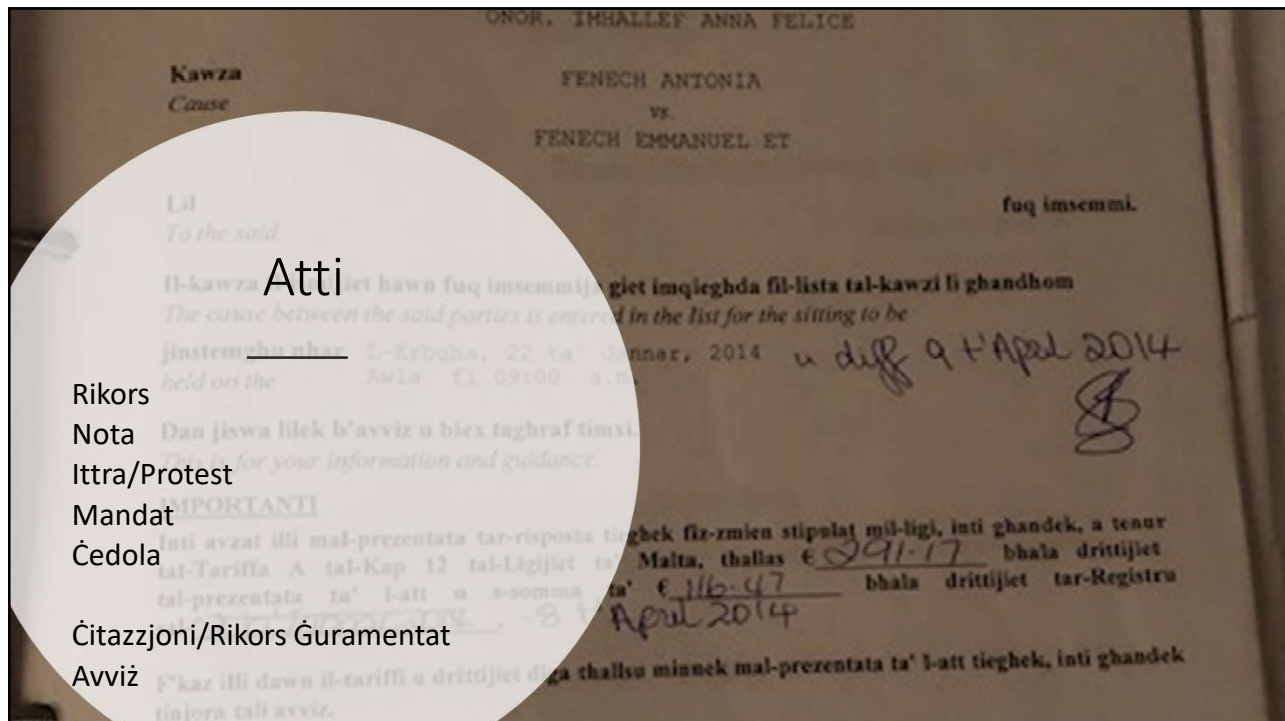 ONOR. IMHALLEF ANNA FELICE
Kawza
Cause
FENECH ANTONIA
vs.
FENECH EMMANUEL ET
Lil fuq imsemmi.
To the said
Il-kawza hawn fuq imsemmija giet imqieghda fil-lista tal-kawzi li ghandhom
The cause between the said parties is entered in the list for the sitting to be
jinstemghu nhar L-Erbgha, 22 ta' Jannar, 2014 u diff 9 t'April 2014
held on the Awla fi 09:00 a.m.
Dan jiswa lilek b'avviz u biex taghraf timxi.
This is for your information and guidance.
IMPORTANTI
Inti avzat illi mal-prezentata tar-risposta tieghek fiz-zmien stipulat mil-ligi, inti ghandek, a tenur
tat-Tariffa A tal-Kap 12 tal-Ligijiet ta' Malta, thallas € 291.17 bhala drittijiet
tal-prezentata ta' l-att u s-somma ta' € 116.47 bhala drittijiet tar-Registru
April 2014
F'kaz illi dawn it-tariffi u drittijiet diga thallsu minnek mal-prezentata ta' l-att tieghek, inti ghandek
tinjora tali avviz.
Atti
Rikors
Nota
Ittra/Protest
Mandat
Ċedola
Ċitazzjoni/Rikors Ġuramentat
Avviż